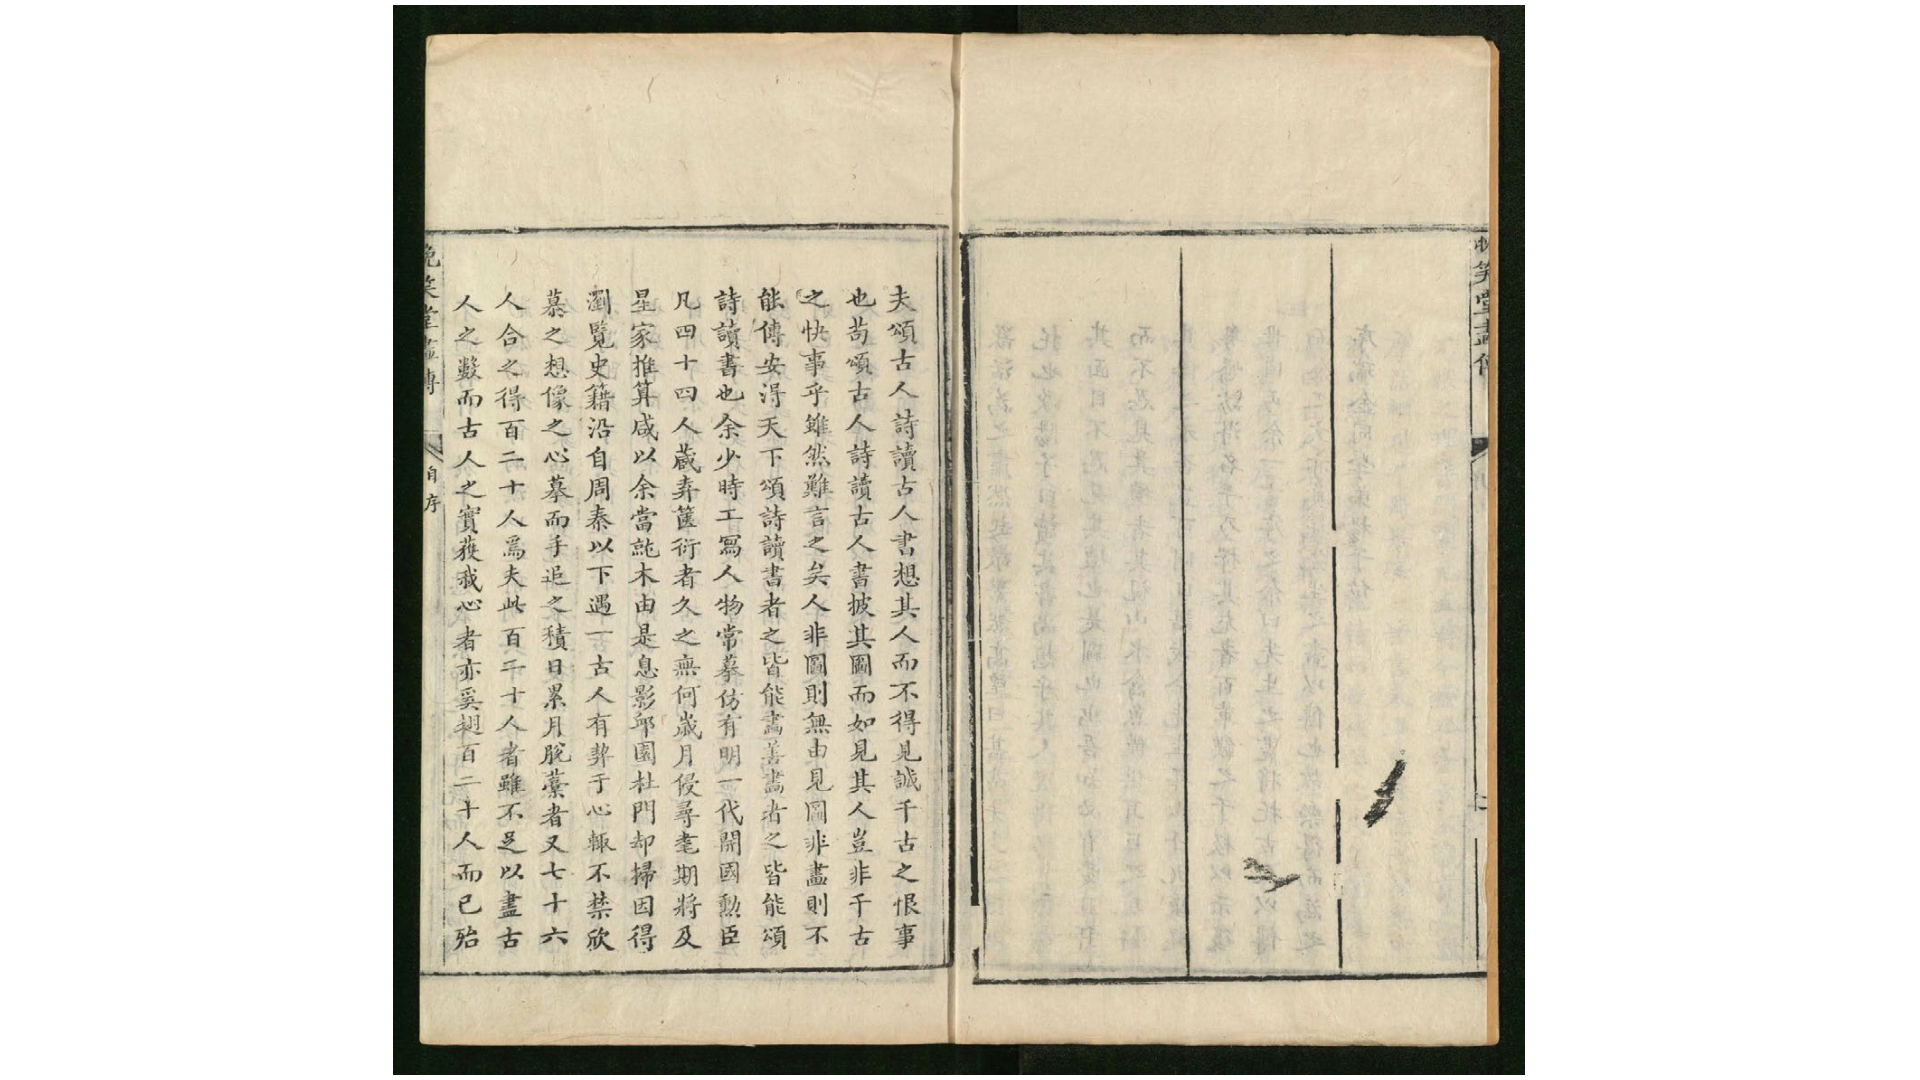 笑堂畫傳
夫頌古人詩讀古人書想其人而不得見誠千古之恨事
也茍頌古人詩讀古人書披其圖而如見其人豈非千古
之快事乎雖然難言之矣人非圖則無由見圖非畵則不
能傳安淂天下頌詩讀書者之皆能畵善畵者之皆能頌
詩讀書也余少時工寫人物常摹仿有明一代開國勲臣
凡四十四人蔵弆篋衍者久之無何嵗月侵尋耄期將及
星家推算咸以余當就木由是息影邱園杜門却掃因得
瀏覧史籍沿自周秦以下遇一古人有契于心輙不禁欣
慕之想像之心摹而手追之積日累月脫藁者又七十六
人合之得百二十人焉夫此百二十人者雖不足以盡古
人之數而古人之實獲我心者亦奚翅百二十人而已殆
晚笑堂畫傳
自序